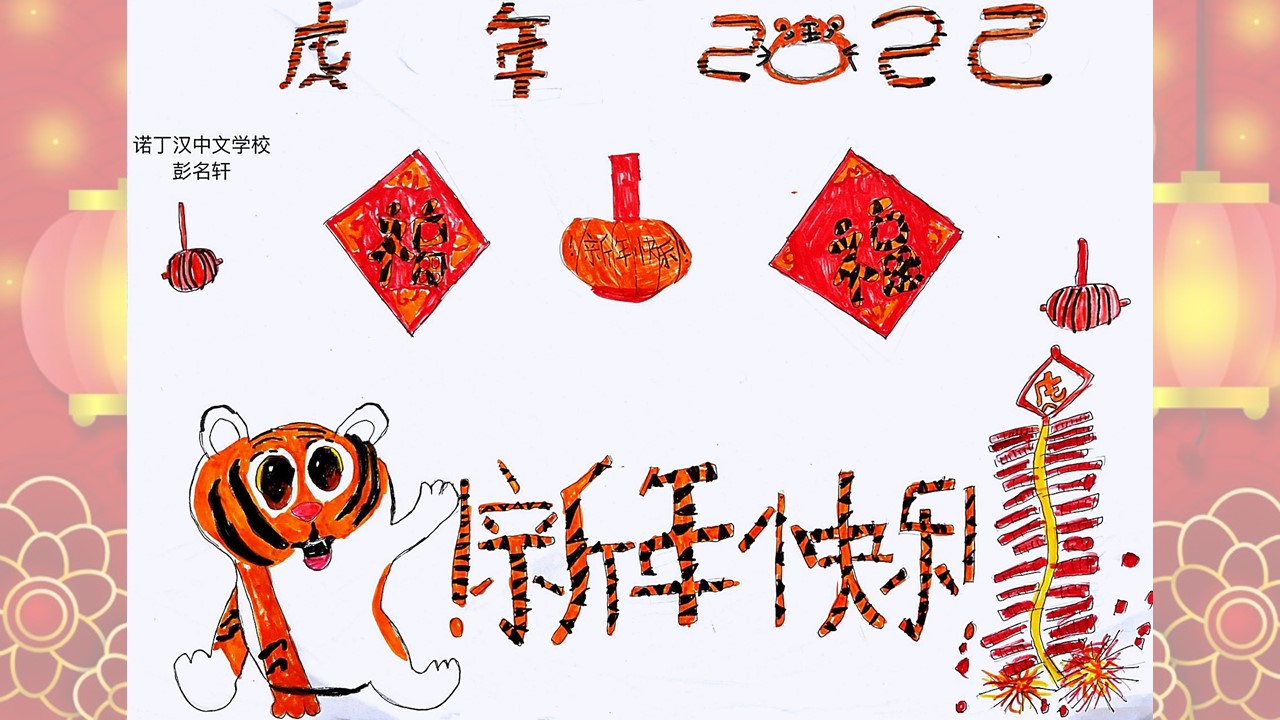 虎 年 2022
诺丁汉中文学校
彭名轩
福
!新年快乐!
福
虎
!新年快乐!